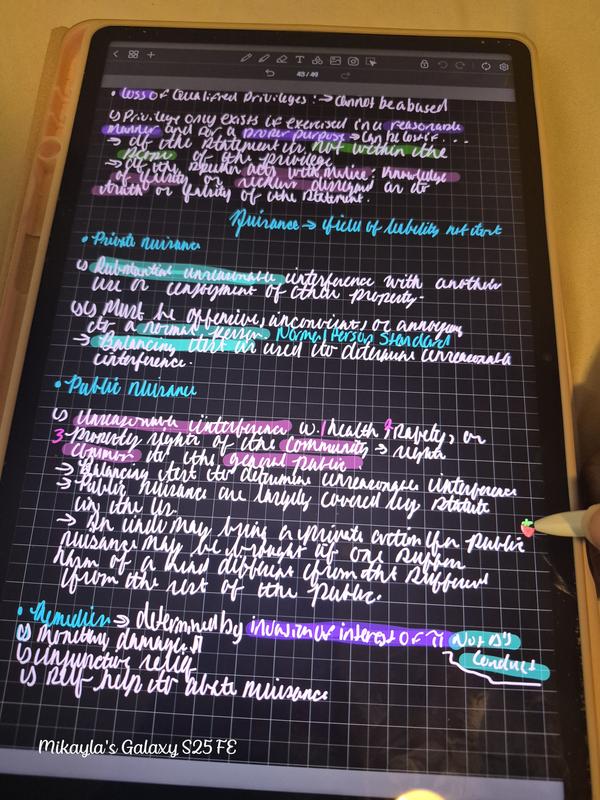 43/49
• Loss of Qualified Privileges: → Cannot be abused
↳ Privilege only exists if exercised in a reasonable
manner and for a proper purpose → Can be lost if...
→ If the statement is not within the
scope of the privilege
→ If the speaker acts with malice: knowledge
of falsity or reckless disregard as to
truth or falsity of the statement.
Nuisance → field of liability not tort
• Private nuisance
↳ Substantial unreasonable interference with another
use or enjoyment of their property.
↳ Must be offensive, inconvenient, or annoying
to a normal person Normal Person Standard
→ Balancing test is used to determine unreasonable
interference.
• Public Nuisance
↳ Unreasonable interference w/ 1 health, 2 safety, or
3 property rights of the community → rights
common to the general public
→ Balancing test to determine unreasonable interference
→ Public nuisance are largely covered by statute
in the
→ An indiv may bring a private action if a public
nuisance may be brought if one suffers
harm of a kind different from that suffered
from the rest of the public.
• Remedies → determined by invasion of interest of π Not Δ's
Conduct
↳ monetary damages
↳ injunctive relief
↳ self help to abate nuisance
Mikayla's Galaxy S25 FE